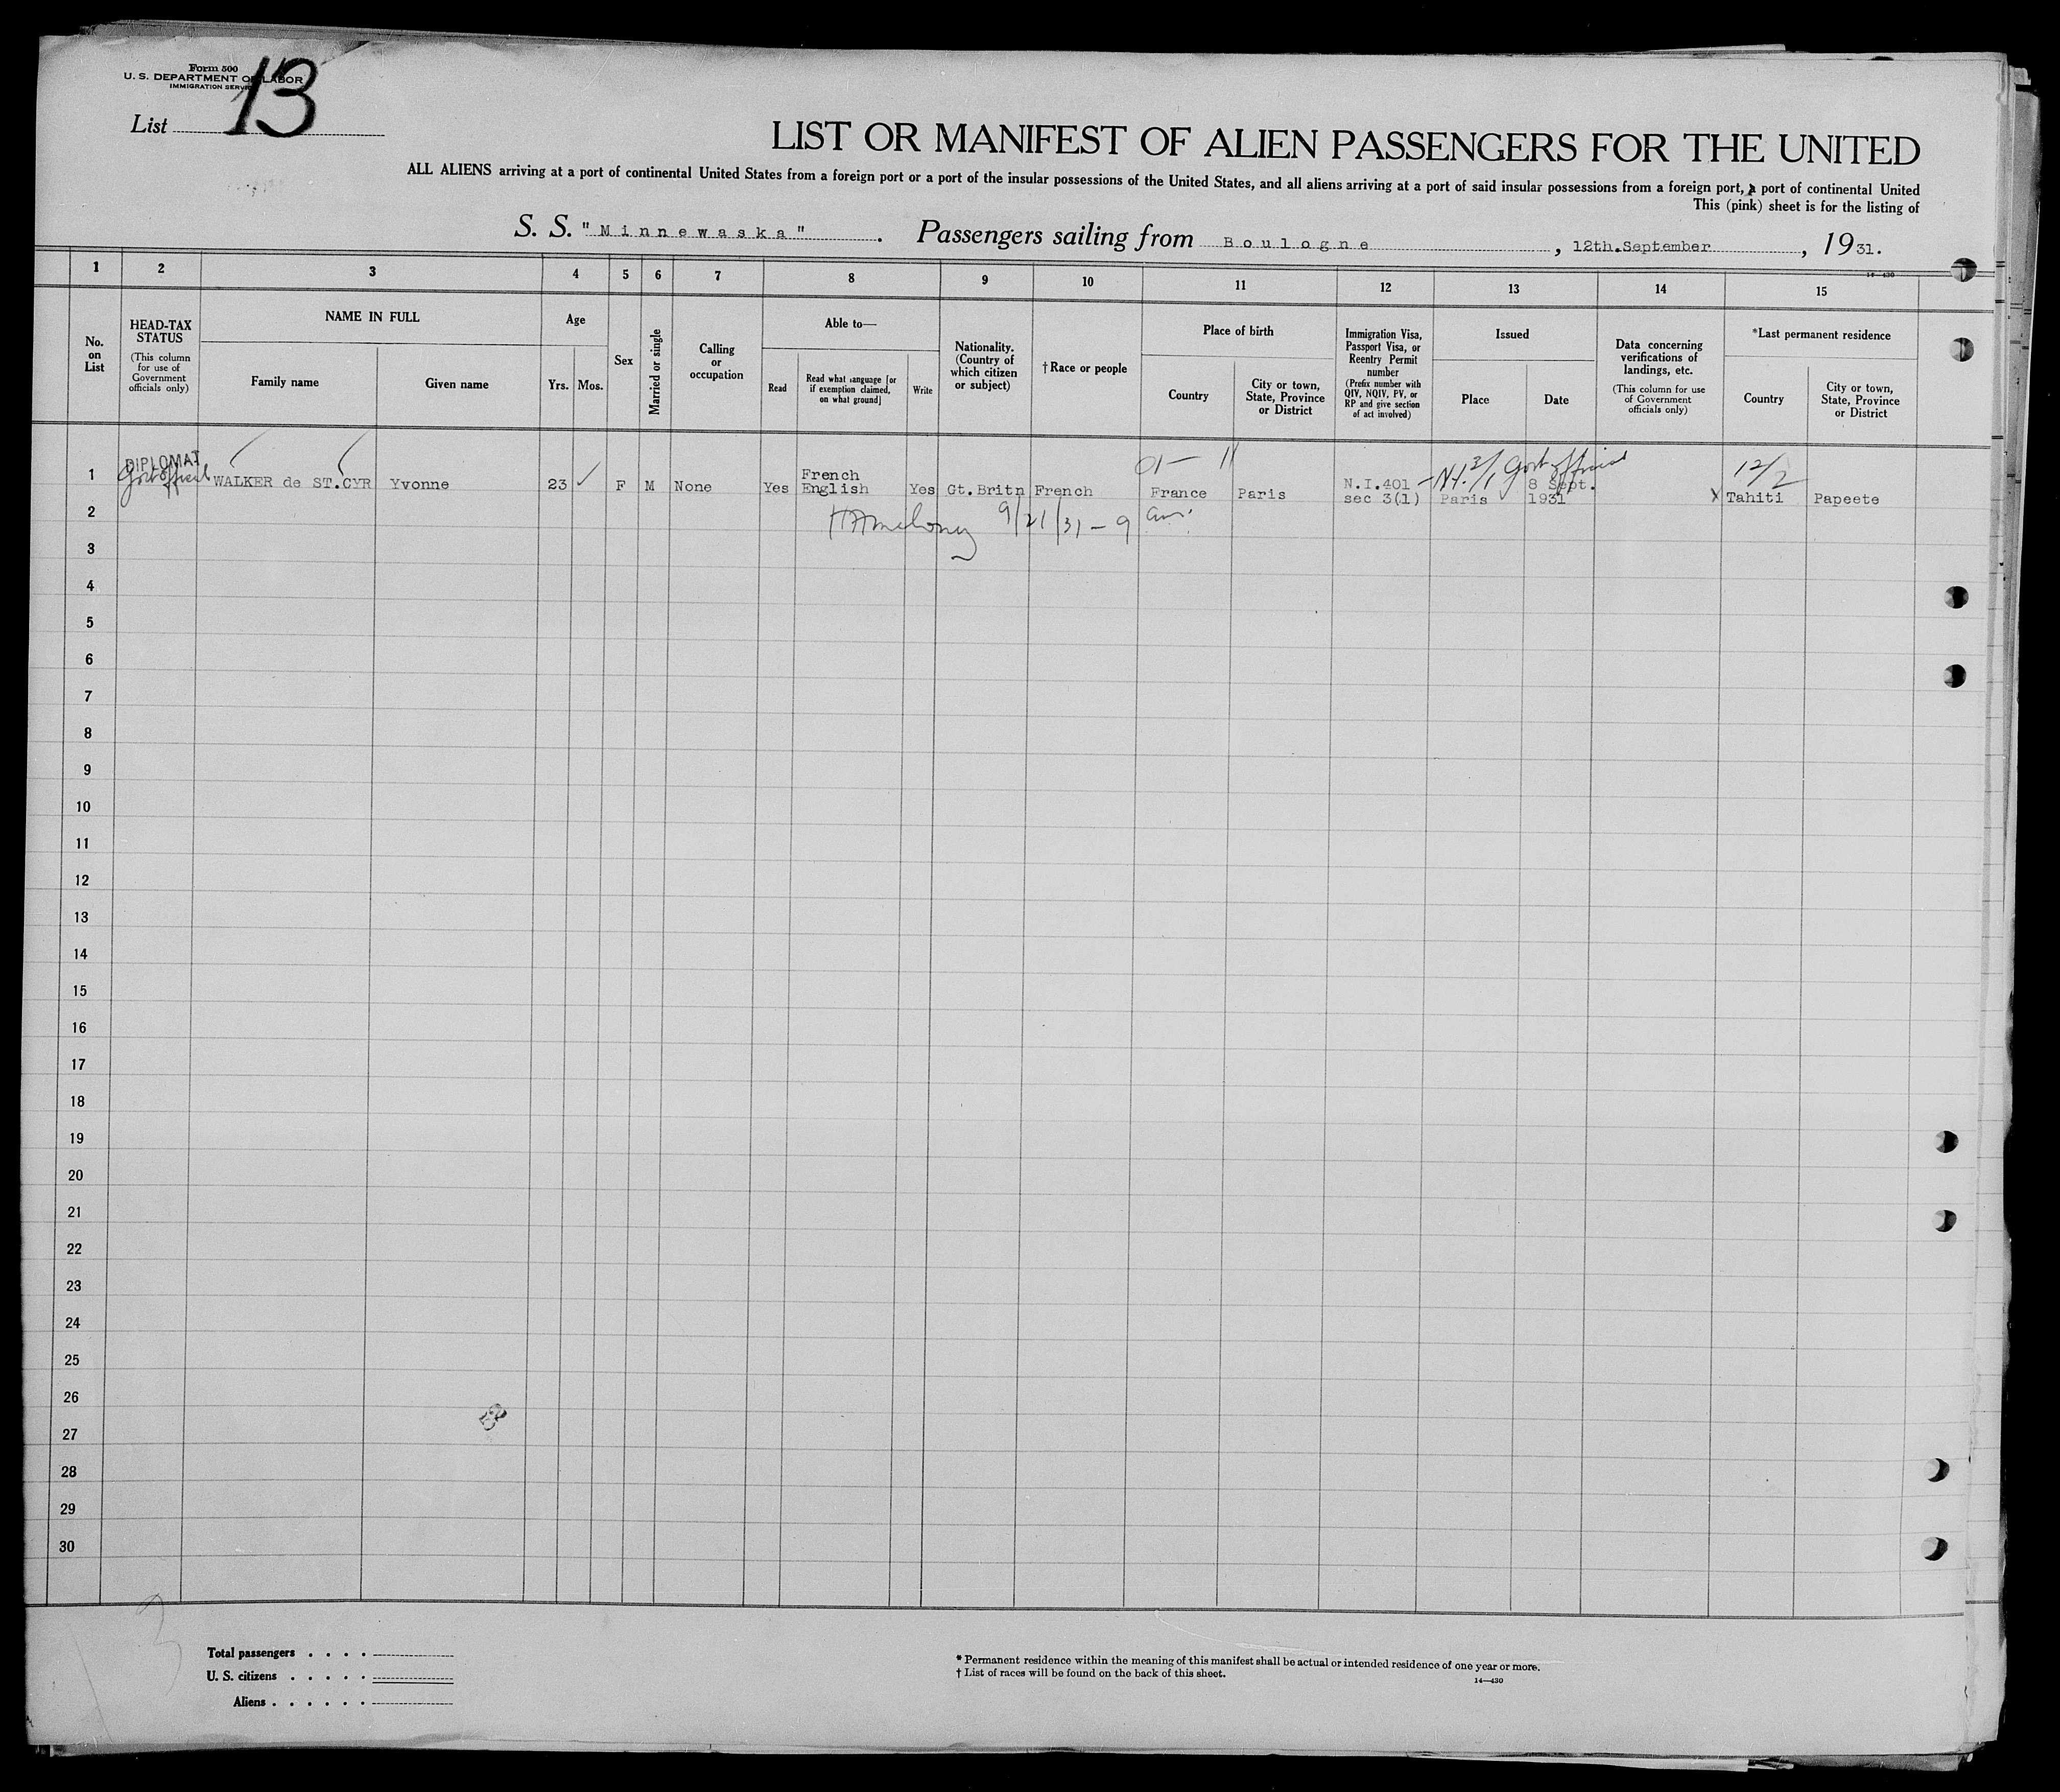 Form 500
U. S. DEPARTMENT OF LABOR
IMMIGRATION SERVICE
List 13
LIST OR MANIFEST OF ALIEN PASSENGERS FOR THE UNITED
ALL ALIENS arriving at a port of continental United States from a foreign port or a port of the insular possessions of the United States, and all aliens arriving at a port of said insular possessions from a foreign port, a port of continental United
This (pink) sheet is for the listing of
S. S. "Minnewaska". Passengers sailing from Boulogne, 12th.September, 1931.
14—430
1 2 3 4 5 6 7 8 9 10 11 12 13 14 15
No. on List
HEAD-TAX STATUS
(This column for use of Government officials only)
NAME IN FULL
Family name
Given name
Age
Yrs. Mos.
Sex
Married or single
Calling or occupation
Able to—
Read
Read what language [or if exemption claimed, on what ground]
Write
Nationality. (Country of which citizen or subject)
†Race or people
Place of birth
Country
City or town, State, Province or District
Immigration Visa, Passport Visa, or Reentry Permit number
(Prefix number with QIV, NQIV, PV, or RP and give section of act involved)
Issued
Place
Date
Data concerning verifications of landings, etc.
(This column for use of Government officials only)
*Last permanent residence
Country
City or town, State, Province or District
01— 11
3/1 Govt official
12/2
DIPLOMAT
Govt official
1 WALKER de ST.CYR Yvonne 23 ✓ F M None Yes French English Yes Gt.Britn French France Paris N.I.401 sec 3(1) Paris 8 Sept. 1931 X Tahiti Papeete
9/21/31 — 9 am.
2
3
4
5
6
7
8
9
10
11
12
13
14
15
16
17
18
19
20
21
22
23
24
25
26
27
28
29
30
Total passengers . . . .
U. S. citizens . . . . .
Aliens . . . . . .
* Permanent residence within the meaning of this manifest shall be actual or intended residence of one year or more.
† List of races will be found on the back of this sheet.
14—430